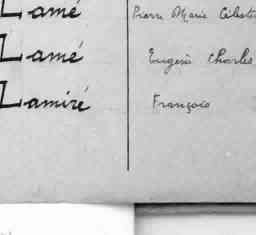 Lamé Pierre Marie Célestin
Lamé Eugène Charles
Lamiré François